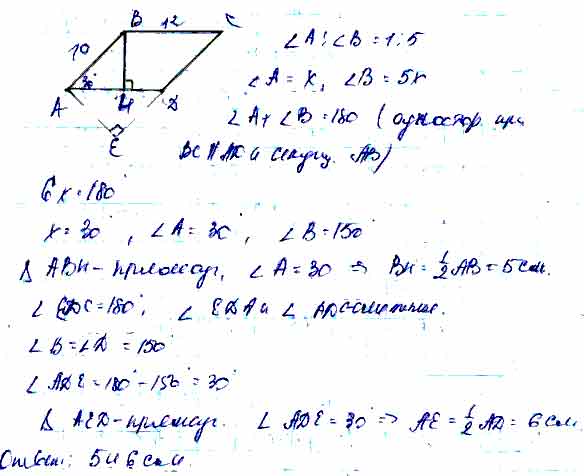 B 12 C
10
30°
A H D
E
∠A:∠B=1:5
∠A = x, ∠B = 5x
∠A+ ∠B=180 (одностор. при
BC II AD и секущ. AB)
6x=180°
x=30°, ∠A=30°, ∠B=150°
Δ ABH-прямоуг, ∠A=30 ⇒ BH=½AB=5см.
∠EDC=180°, ∠EDA и ∠ADC-смежные.
∠B=∠D=150°
∠ADE=180°-150°=30°
Δ AED-прямоуг. ∠ADE=30° ⇒ AE=½AD=6см
Ответ: 5 и 6 см.